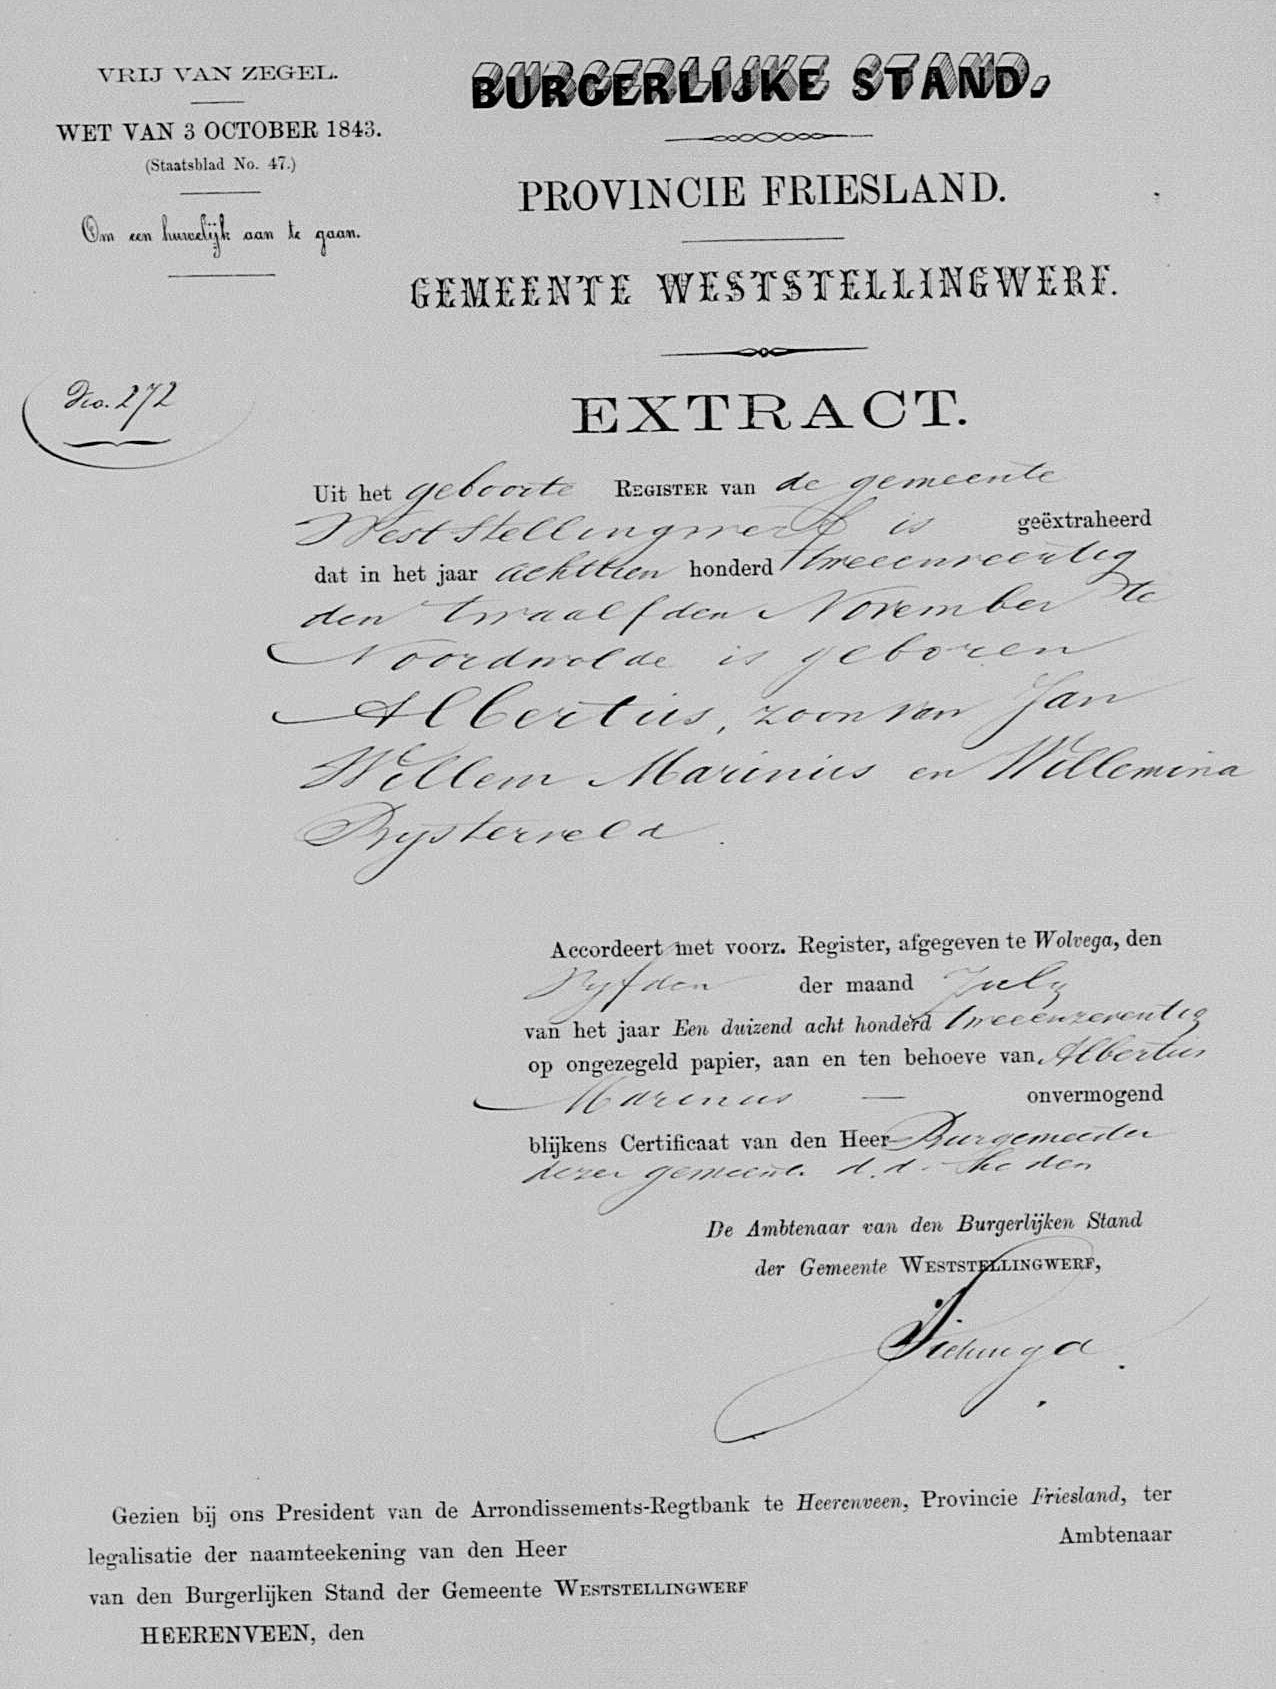 VRIJ VAN ZEGEL.
WET VAN 3 OCTOBER 1843.
(Staatsblad No. 47.)
Om een huwelijk aan te gaan.
No. 272
BURGERLIJKE STAND,
PROVINCIE FRIESLAND.
GEMEENTE WESTSTELLINGWERF.
EXTRACT.
Uit het geboorte REGISTER van de gemeente
Weststellingwerf is geëxtraheerd
dat in het jaar achttien honderd tweeenveertig
den twaalfden November te
Noordwolde is geboren
Albertus, zoon van Jan
Willem Marinus en Willemina
Rijsterveld.
Accordeert met voorz. Register, afgegeven te Wolvega, den
Vijfden der maand July
van het jaar Een duizend acht honderd tweeenzeventig
op ongezegeld papier, aan en ten behoeve van Albertus
Marinus — onvermogend
blijkens Certificaat van den Heer Burgemeester
dezer gemeente d.d. heden
De Ambtenaar van den Burgerlijken Stand
der Gemeente WESTSTELLINGWERF,
Gezien bij ons President van de Arrondissements-Regtbank te Heerenveen, Provincie Friesland, ter
legalisatie der naamteekening van den Heer Ambtenaar
van den Burgerlijken Stand der Gemeente WESTSTELLINGWERF
HEERENVEEN, den